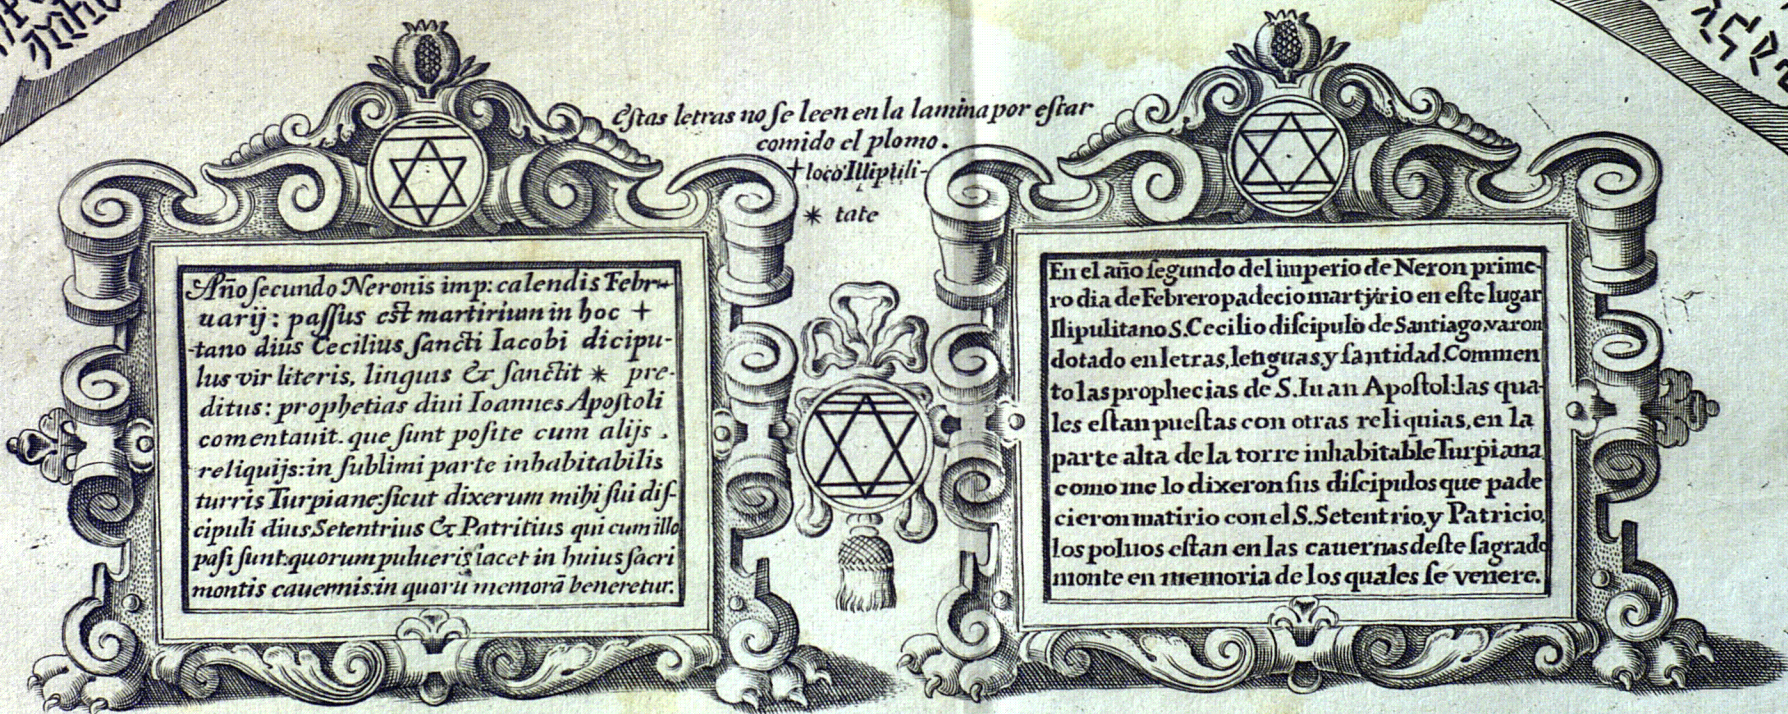 Estas letras no se leen en la lamina por estar
comido el plomo.
+ loco Illipuli-
* tate
Año secundo Neronis imp: calendis Febru-
uarij: passus est martirium in hoc +
-tano dius Cecilius sancti Iacobi dicipu-
lus vir literis, linguis & sanctit * pre-
ditus: prophetias diui Ioannes Apostoli
comentauit. que sunt posite cum alijs .
reliquijs: in sublimi parte inhabitabilis
turris Turpiane: sicut dixerum mihi sui dis-
cipuli dius Setentrius & Patritius qui cum illo
pasi sunt: quorum pulueris iacet in huius sacri
montis cauernis: in quorū memorā beneretur.
En el año segundo del imperio de Neron prime-
ro dia de Febrero padecio martyrio en este lugar
Ilipulitano S. Cecilio discipulo de Santiago, varon
dotado en letras, lenguas, y santidad. Commen
to las prophecias de S. Iuan Apostol: las qua-
les estan puestas con otras reliquias, en la
parte alta de la torre inhabitable Turpiana,
como me lo dixeron sus discipulos que pade
cieron matirio con el S. Setentrio, y Patricio,
los poluos estan en las cauernas deste sagrado
monte en memoria de los quales se venere.